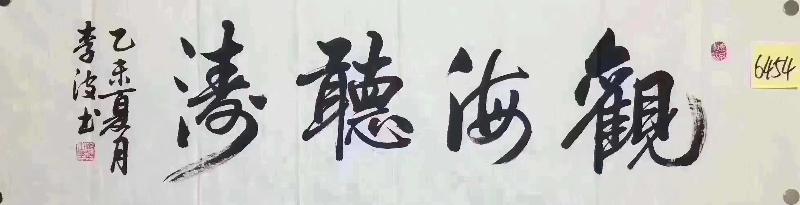 觀海聽濤
乙未夏月
李波书
6454